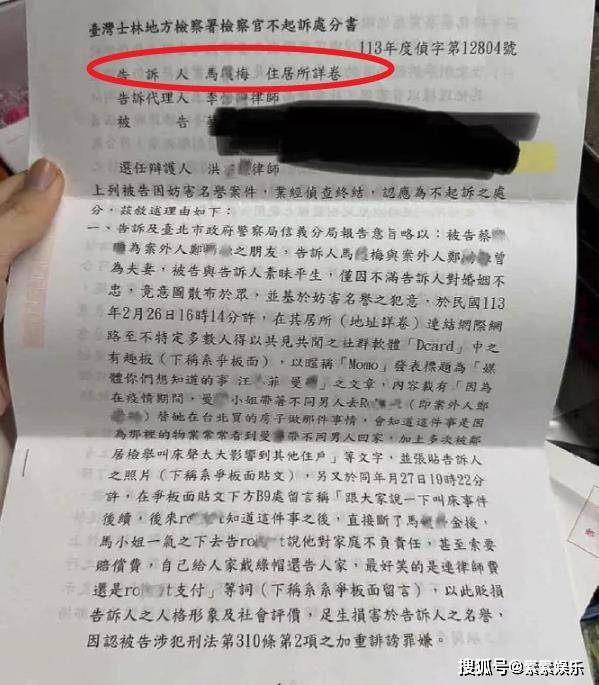 臺灣士林地方檢察署檢察官不起訴處分書
113年度偵字第12804號
告訴人 馬 梅 住居所詳卷
告訴代理人 李 律師
被告
選任辯護人 洪 律師
上列被告因妨害名譽案件,業經偵查終結,認應為不起訴之處
分,茲敘述理由如下:
一、告訴及臺北市政府警察局信義分局報告意旨略以:被告蔡
為案外人鄭 之朋友,告訴人馬 梅與案外人鄭 曾
為夫妻,被告與告訴人素昧平生,僅因不滿告訴人對婚姻不
忠,竟意圖散布於眾,並基於妨害名譽之犯意,於民國113
年2月26日16時14分許,在其居所(地址詳卷)連結網際網
路至不特定多數人得以共見共聞之社群軟體「Dcard」中之
有趣板(下稱系爭板面),以暱稱「Momo」發表標題為「媒
體你們想知道的事 汪 菲 曼 」之文章,內容載有「因為
在疫情期間,曼 小姐帶著不同男人去Ro (即案外人鄭
)替她在台北買的房子做那件事情,會知道這件事是因
為那裡的物業常常看到曼 帶不同男人回家,加上多次被鄰
居檢舉叫床聲太大影響到其他住戶」等文字,並張貼告訴人
之照片(下稱系爭板面貼文),另又於同年月27日19時22分
許,在爭板面貼文下方B9處留言稱「跟大家說一下叫床事件
後續,後來ro t知道這件事之後,直接斷了馬 金援,
馬小姐一氣之下去告ro t說他對家庭不負責任,甚至索要
賠償費,自己給人家戴綠帽還告人家,最好笑的是連律師費
還是ro t支付」等詞(下稱系系爭板面留言),以此貶損
告訴人之人格形象及社會評價,足生損害於告訴人之名譽,
因認被告涉犯刑法第310條第2項之加重誹謗罪嫌。
搜狐号@素素娱乐